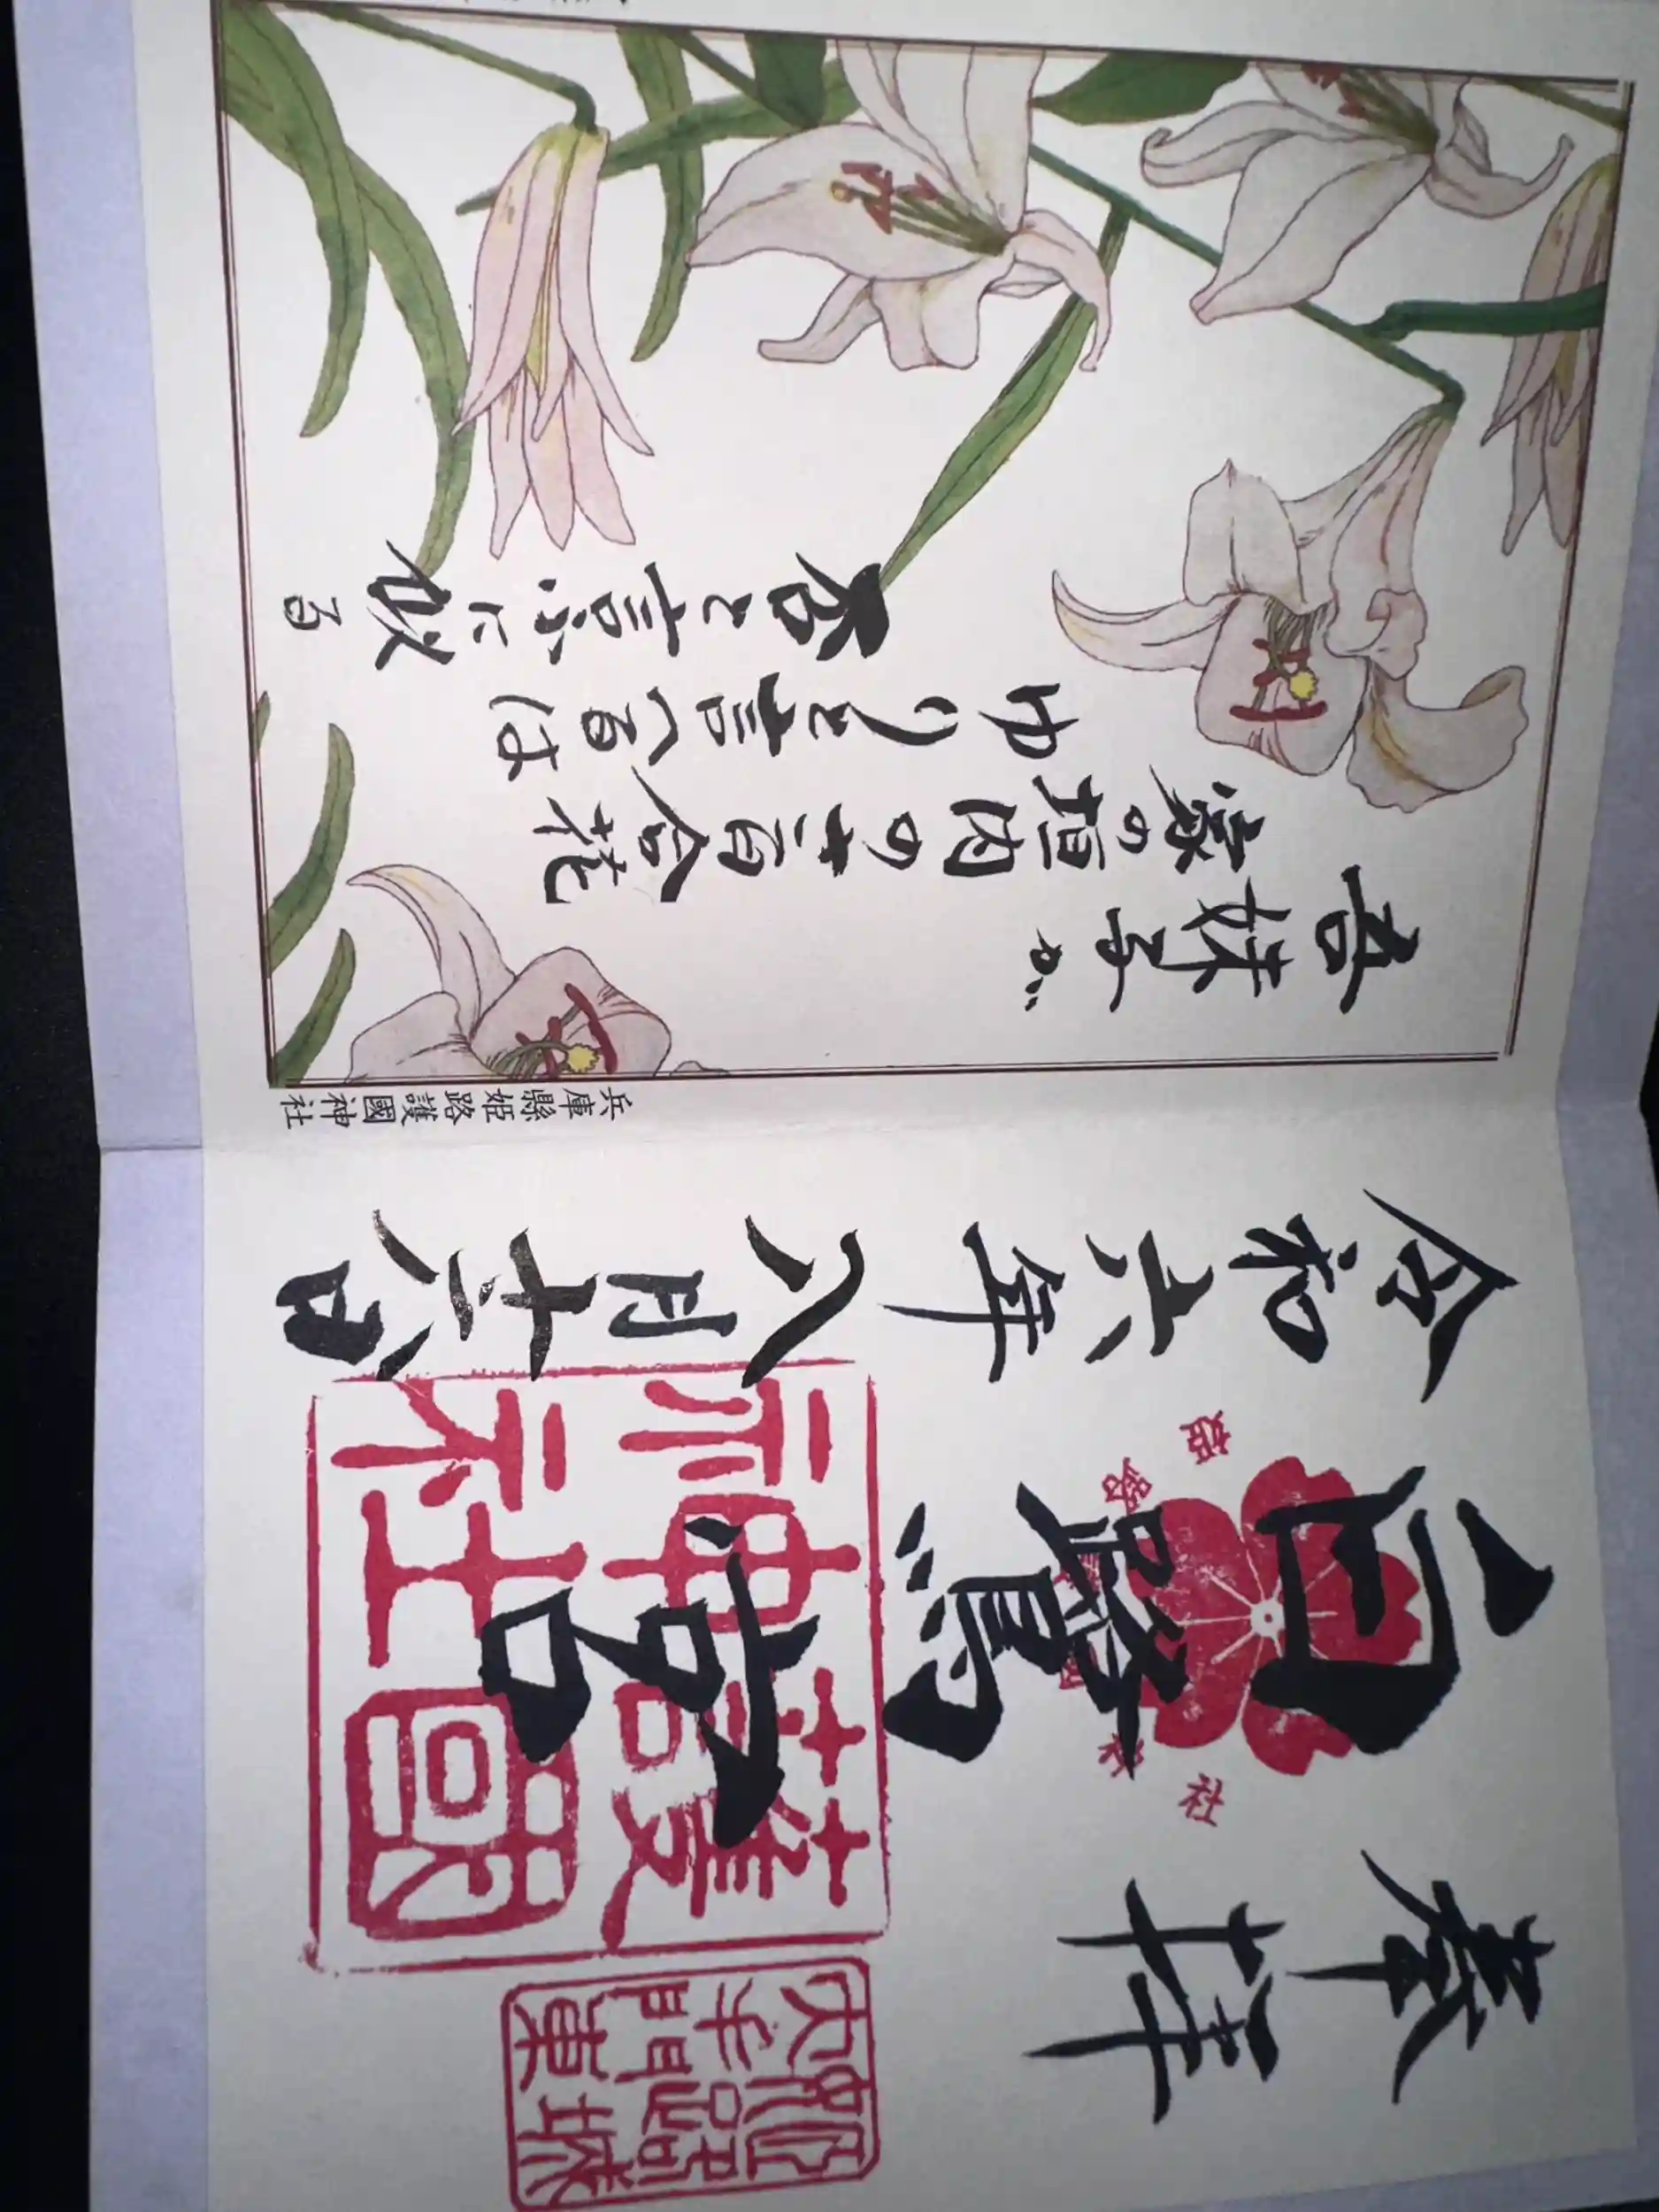 奉拝
白鷺宮
姫路護國神社
護國神社
令和六年八月十六日
兵庫縣姫路護國神社
吾妹子が
家の垣内のさ百合花
ゆりと言へるは
否と言ふに似る